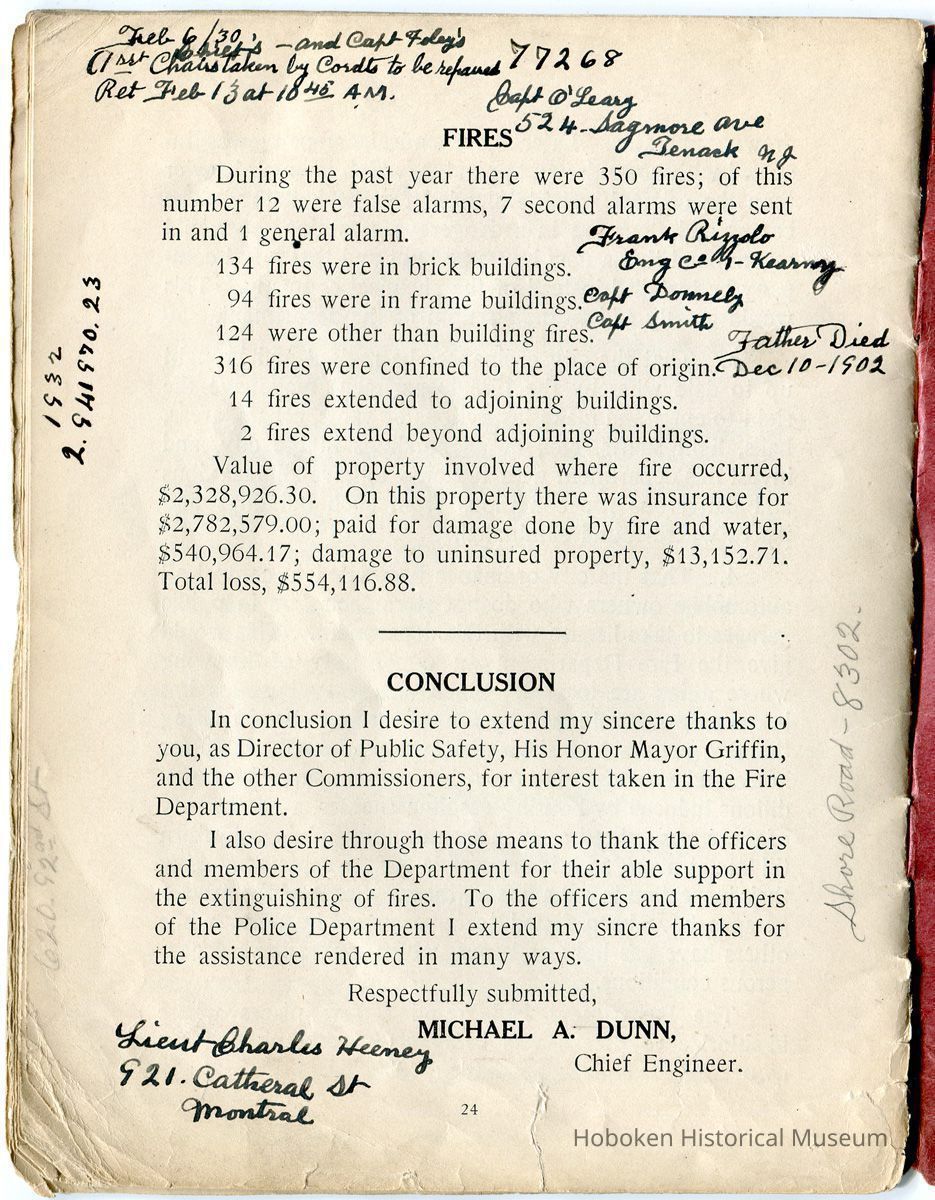 Feb 6/30
Chief's - and Capt Foley's
Chairs taken by Cordts to be repaired
Ret Feb 13 at 10 45 A.M.
77268
Capt O'Leary
524 - Sagmore ave
Tenack NJ
FIRES
During the past year there were 350 fires; of this
number 12 were false alarms, 7 second alarms were sent
in and 1 general alarm.
Frank Rizzolo
Eng Co 1 - Kearny
134 fires were in brick buildings.
94 fires were in frame buildings.
Capt Donnely
Capt Smith
124 were other than building fires.
Father Died
Dec 10-1902
316 fires were confined to the place of origin.
14 fires extended to adjoining buildings.
2 fires extend beyond adjoining buildings.
1932
2.941970.23
Value of property involved where fire occurred,
$2,328,926.30. On this property there was insurance for
$2,782,579.00; paid for damage done by fire and water,
$540,964.17; damage to uninsured property, $13,152.71.
Total loss, $554,116.88.
CONCLUSION
In conclusion I desire to extend my sincere thanks to
you, as Director of Public Safety, His Honor Mayor Griffin,
and the other Commissioners, for interest taken in the Fire
Department.
I also desire through those means to thank the officers
and members of the Department for their able support in
the extinguishing of fires. To the officers and members
of the Police Department I extend my sincre thanks for
the assistance rendered in many ways.
Shore Road - 8302.
620.92nd St
Respectfully submitted,
MICHAEL A. DUNN,
Chief Engineer.
Lieut Charles Heeney
921. Catheral St
Montral
24
Hoboken Historical Museum